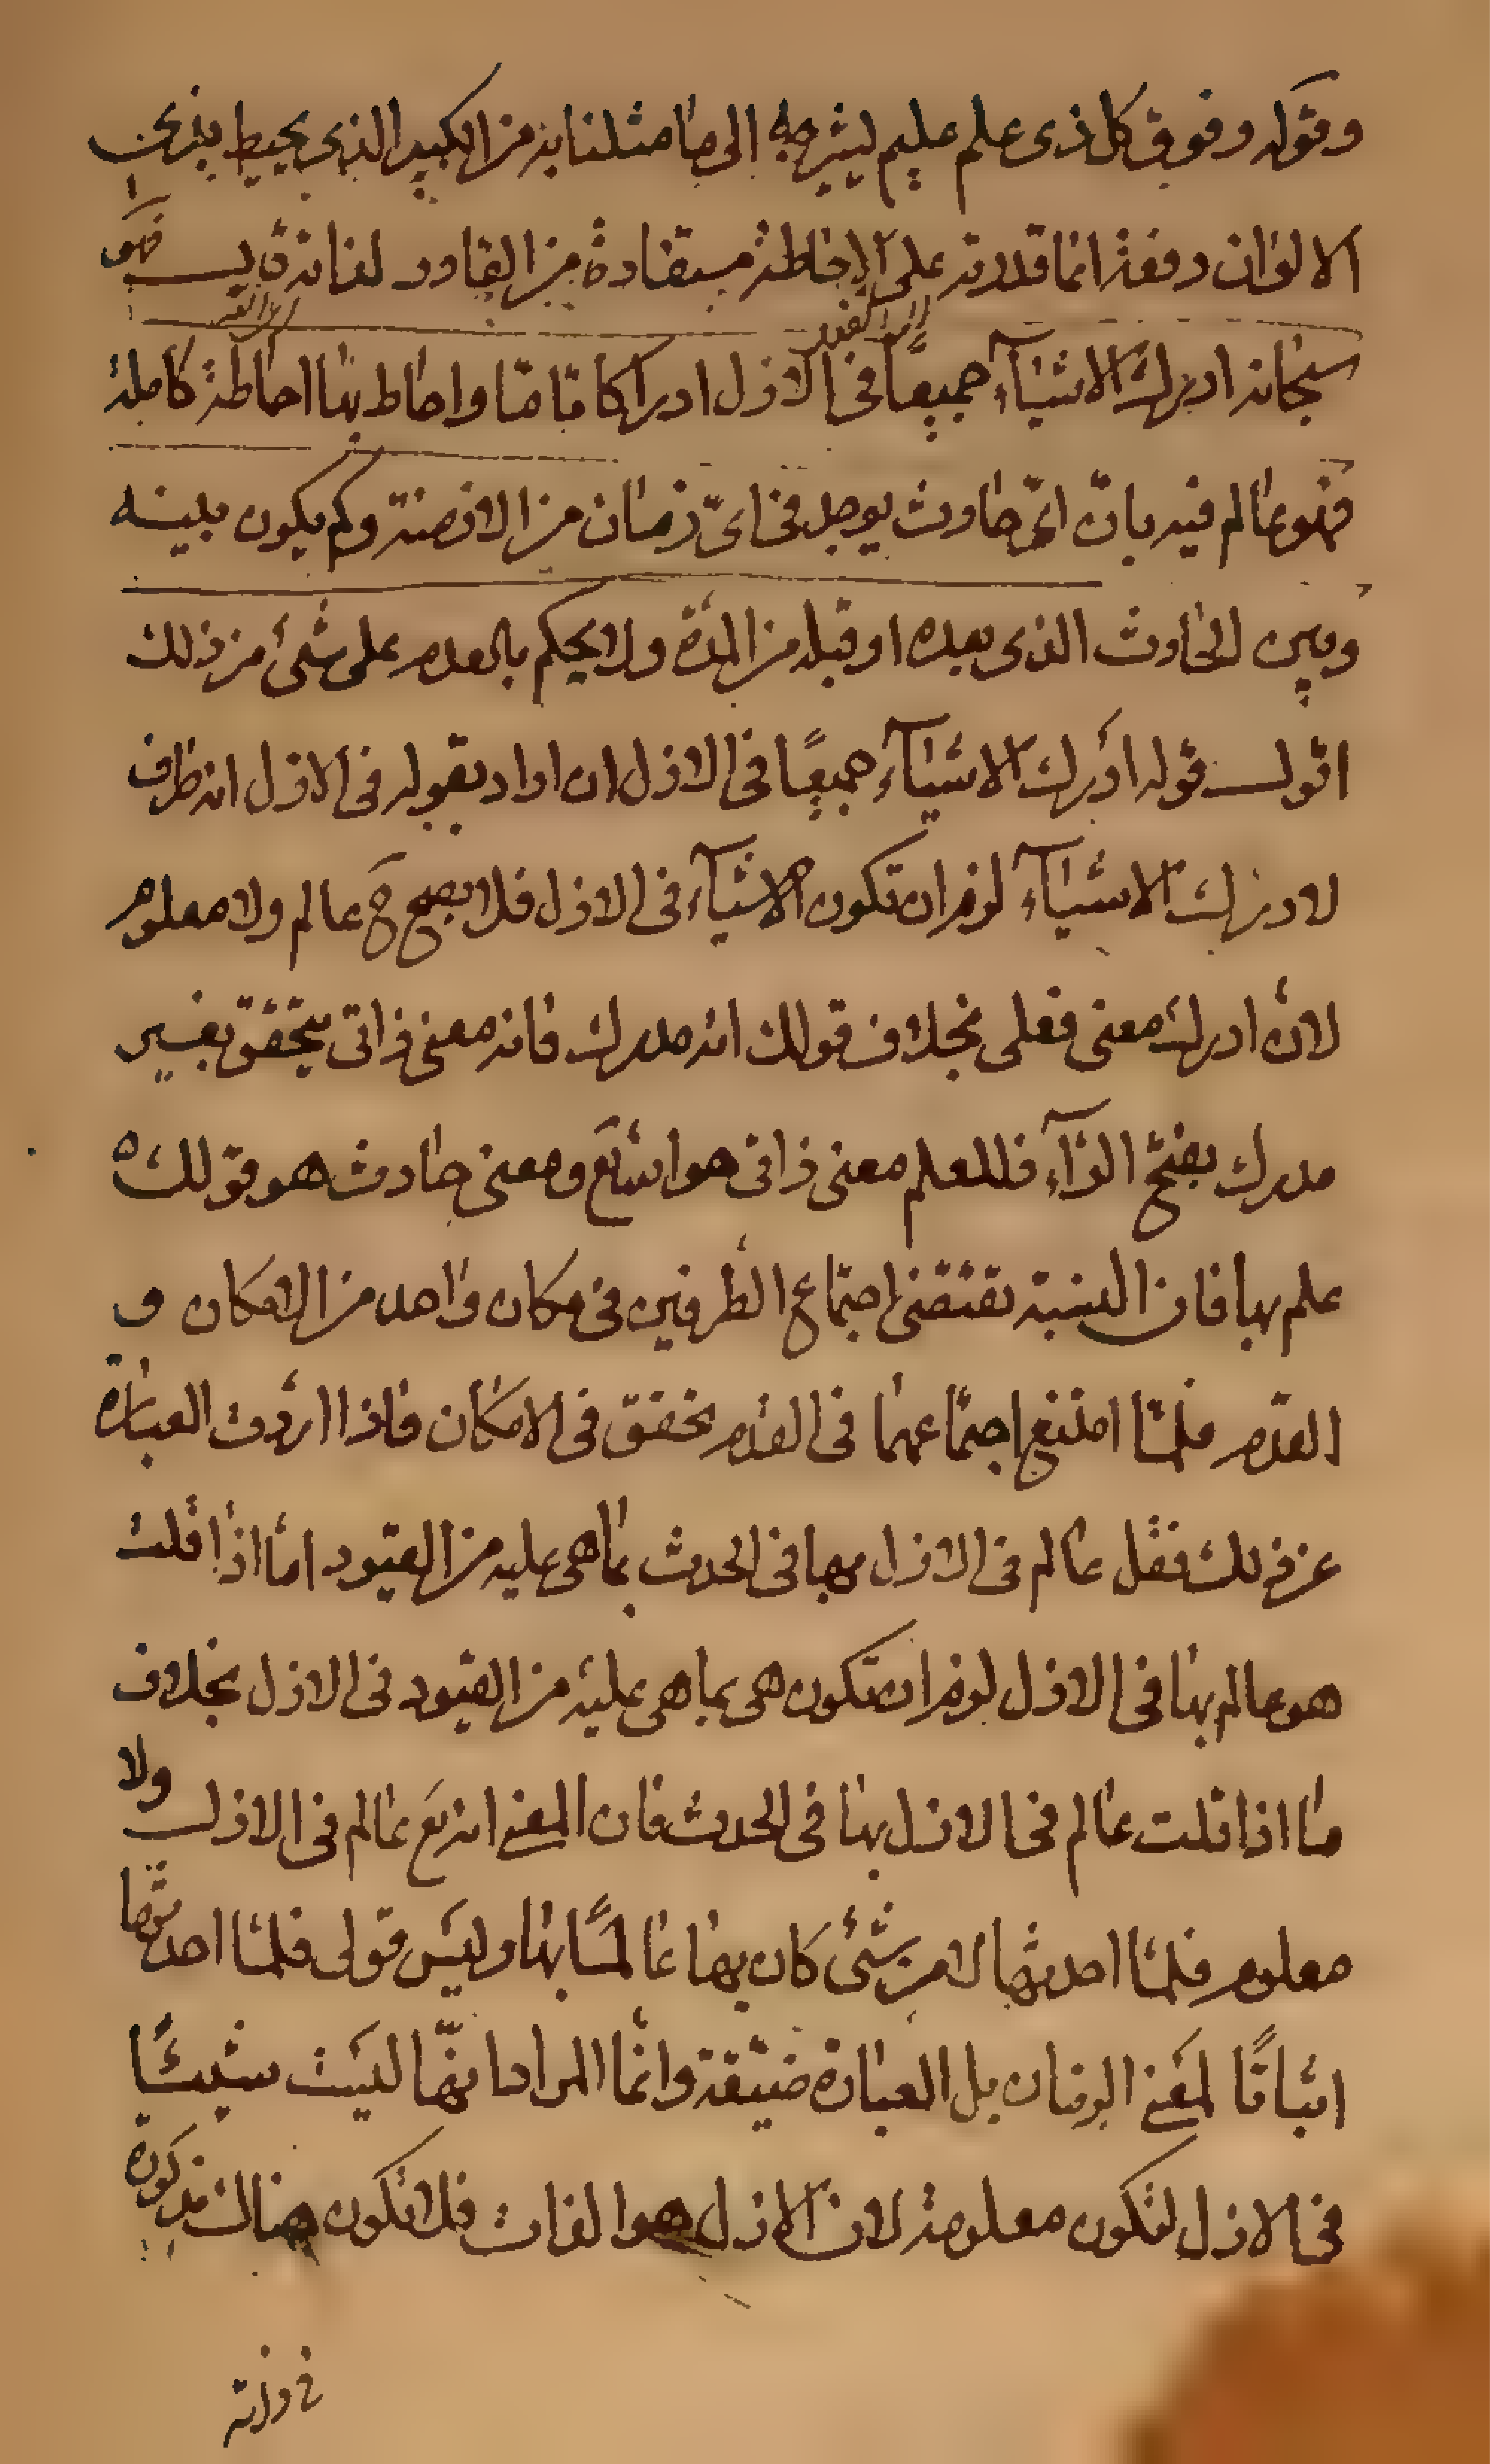 وقوله وفوق كل ذى علم عليم ليشير به الى ما مثلنا به من الكبير الذى يحيط بذى
الالوان دفعة انما قدرته على الاحاطة مستفادة من القادر لذاته قال فهو
سبحانه ادرك الاشيآء جميعًا فى الازل ادراكا تاما واحاط بها احاطة كاملة
فهو عالم فيه بانّ اىّ حادث يوجد فى اىّ زمان من الازمنة وكم يكون بينه
وبين الحادث الذى بعده او قبله من المدّة ولا يحكم بالعدم على شئ من ذلك
اقول قوله ادرك الاشيآء جميعًا فى الازل ان اراد بقوله فى الازل انه ظرف
لادرك الاشيآء لزم ان تكون الاشيآء فى الازل فلا يصح ح عالم ولا معلوم
لانّ ادرك معنى فعلى بخلاف قولك انه مدرك فانه معنى ذاتى يتحقق بغير
مدرك بفتح الرآء فللعلم معنى ذاتى هو الله تع ومعنى حادث هو قولك
علم بها فان النسبة تقتضى اجتماع الطرفين فى مكان واحد من الامكان و
القدم فلمّا امتنع اجتماعهما فى القدم تحقق فى الامكان فاذا اردت العبارة
عن ذلك فقل عالم فى الازل بها فى الحدث بما هى عليه من القيود امّا اذا قلت
هو عالم بها فى الازل لزم ان تكون هى بما هى عليه من القيود فى الازل بخلاف
ما اذا قلت عالم فى الازل بها فى الحدث فان المعنى انه تع عالم فى الازل ولا
معلوم فلمّا احدثها لا من شئ كان بها عالمًا بها وليس قولى فلمّا احدثها
اثباتًا لمعنى الزمان بل العبارة ضيّقة وانّما المراد انّها ليست شيئًا
فى الازل لتكون معلومة لان الازل هو الذات فلا تكون هناك مذكورة
فى ذاته